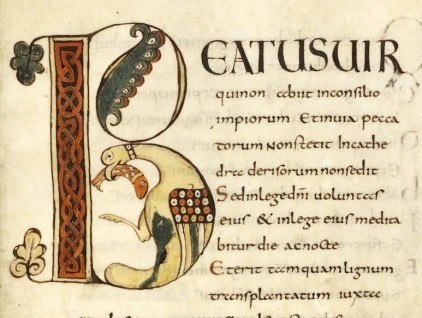 BEATUSUIR
quinon abiit inconsilio
impiorum Etinuia pecca
torum Nonstetit Incathe
dra derisorum nonsedit
Sedinlege dni uoluntas
eius & inlege eius medita
bitur die acnocte
Eterit tamquam lignum
transplantatum iuxta